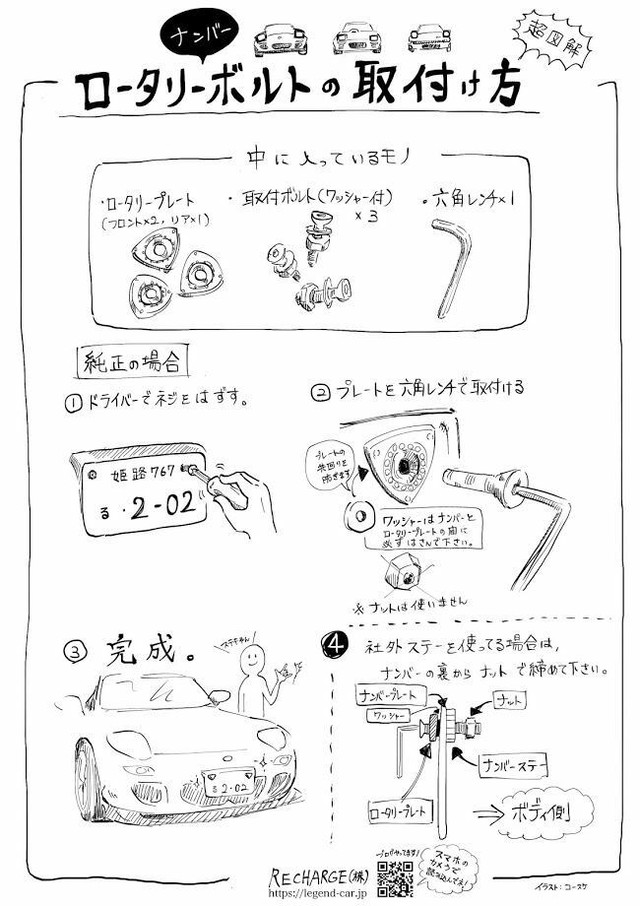 ナンバー
超図解
ロータリーボルトの取付け方
中に入っているモノ
・ロータリープレート
(フロント×2, リア×1)
・取付ボルト(ワッシャー付)
×3
・六角レンチ×1
純正の場合
① ドライバーでネジをはずす。
姫路767
る・2-02
② プレートを六角レンチで取付ける
プレートの
共回りを
防ぎます
ワッシャーはナンバーと
ロータリープレートの間に
必ずはさんで下さい。
※ナットは使いません
③ 完成。
ステキやん
る 2-02
④ 社外ステーを使ってる場合は、
ナンバーの裏からナットで締めて下さい。
ナンバープレート
ワッシャー
ナット
ナンバーステー
ロータリープレート
ボディ側
ブログやってます!
スマホの
カメラで
読み込んでネ!
RECHARGE(株)
https://legend-car.jp
イラスト:コースケ